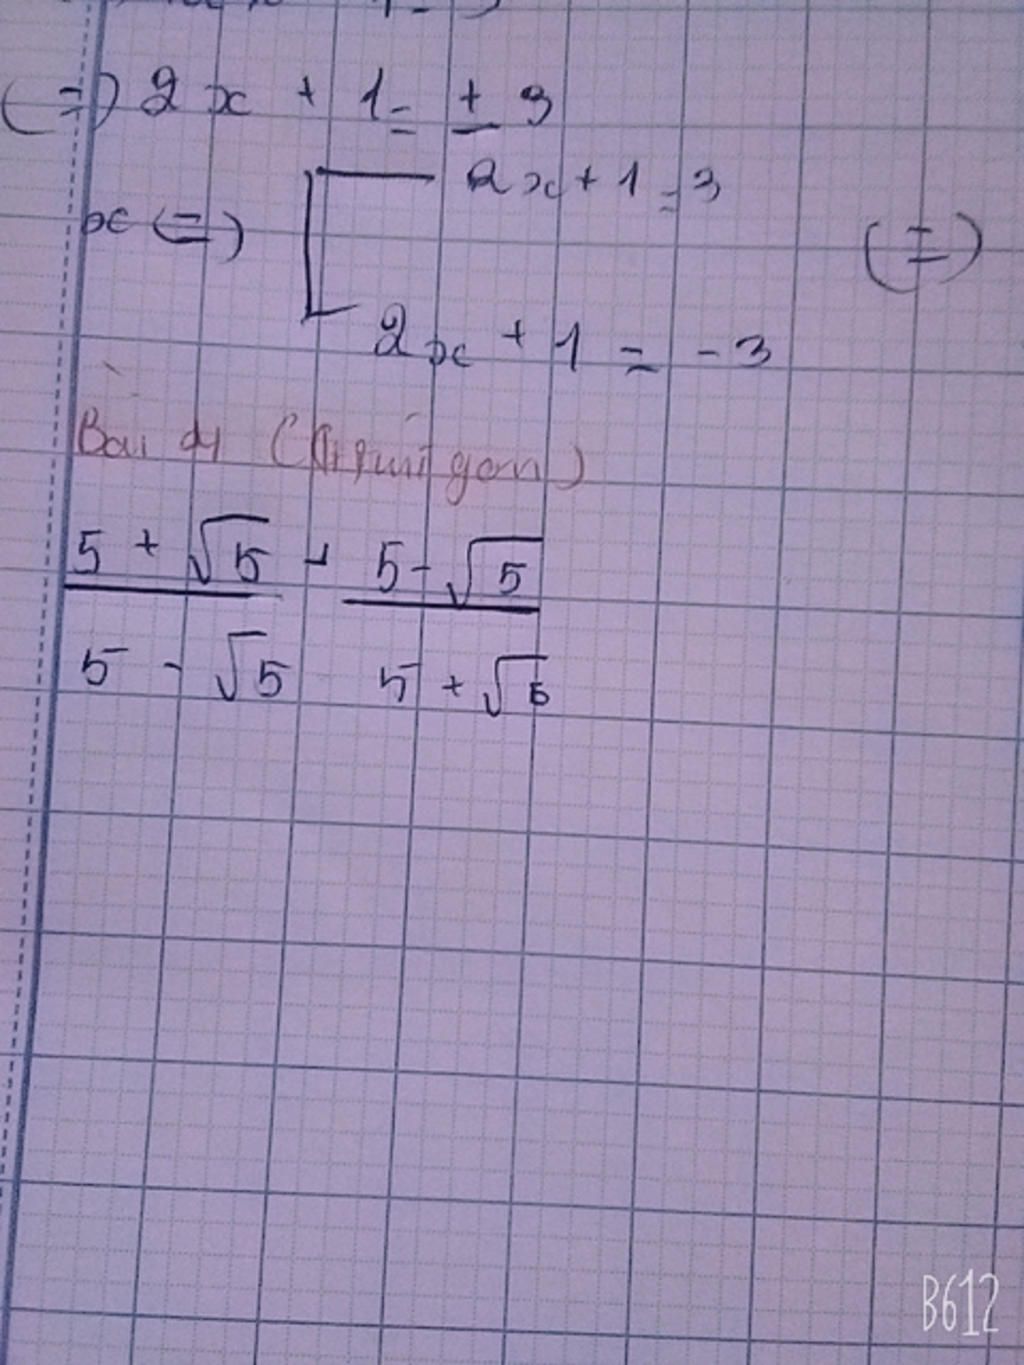 (=) 2x + 1 = ± 3
2x + 1 = 3
x (=) (=)
2x + 1 = -3
Bài 4 (Rút gọn)
5 + √5 + 5 - √5
5 - √5 5 + √5
B612